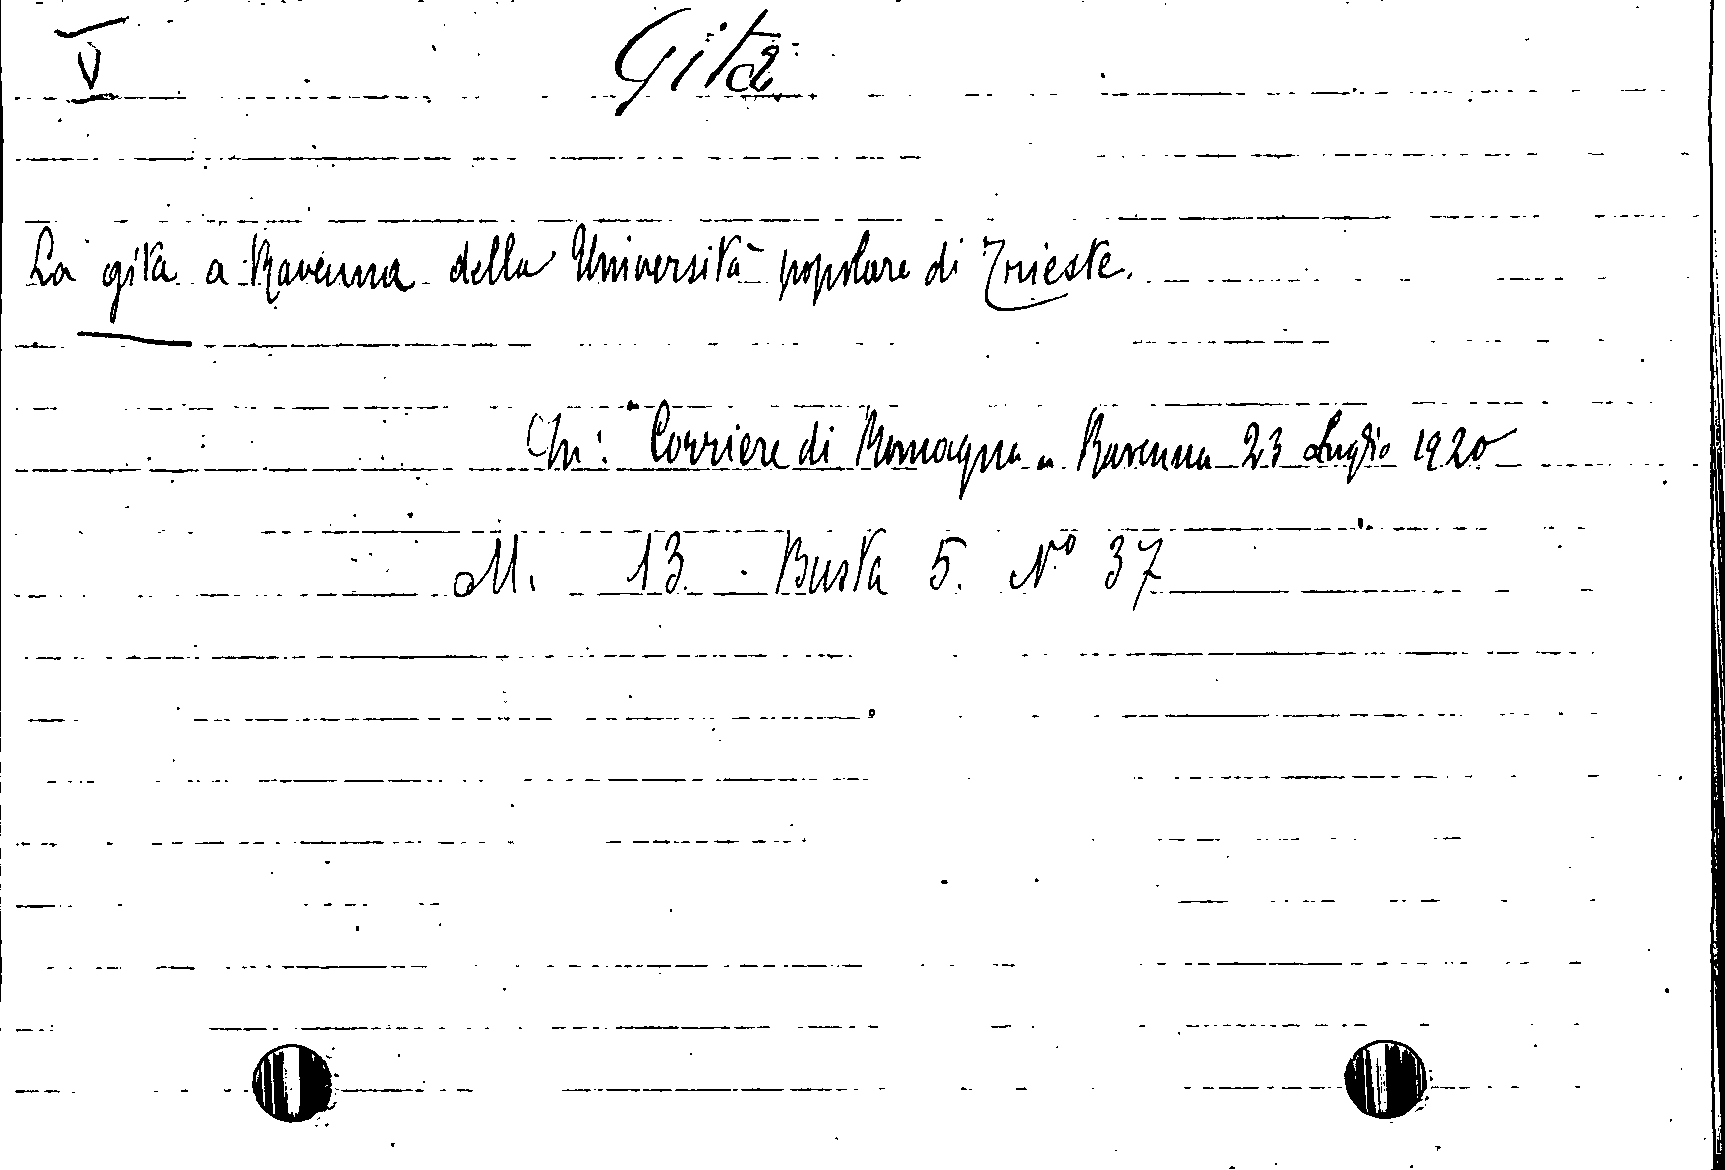 V Gita
La gita a Ravenna della Università popolare di Trieste.
In: Corriere di Romagna - Ravenna 23 Luglio 1920
M. 13. Busta 5. Nº 37